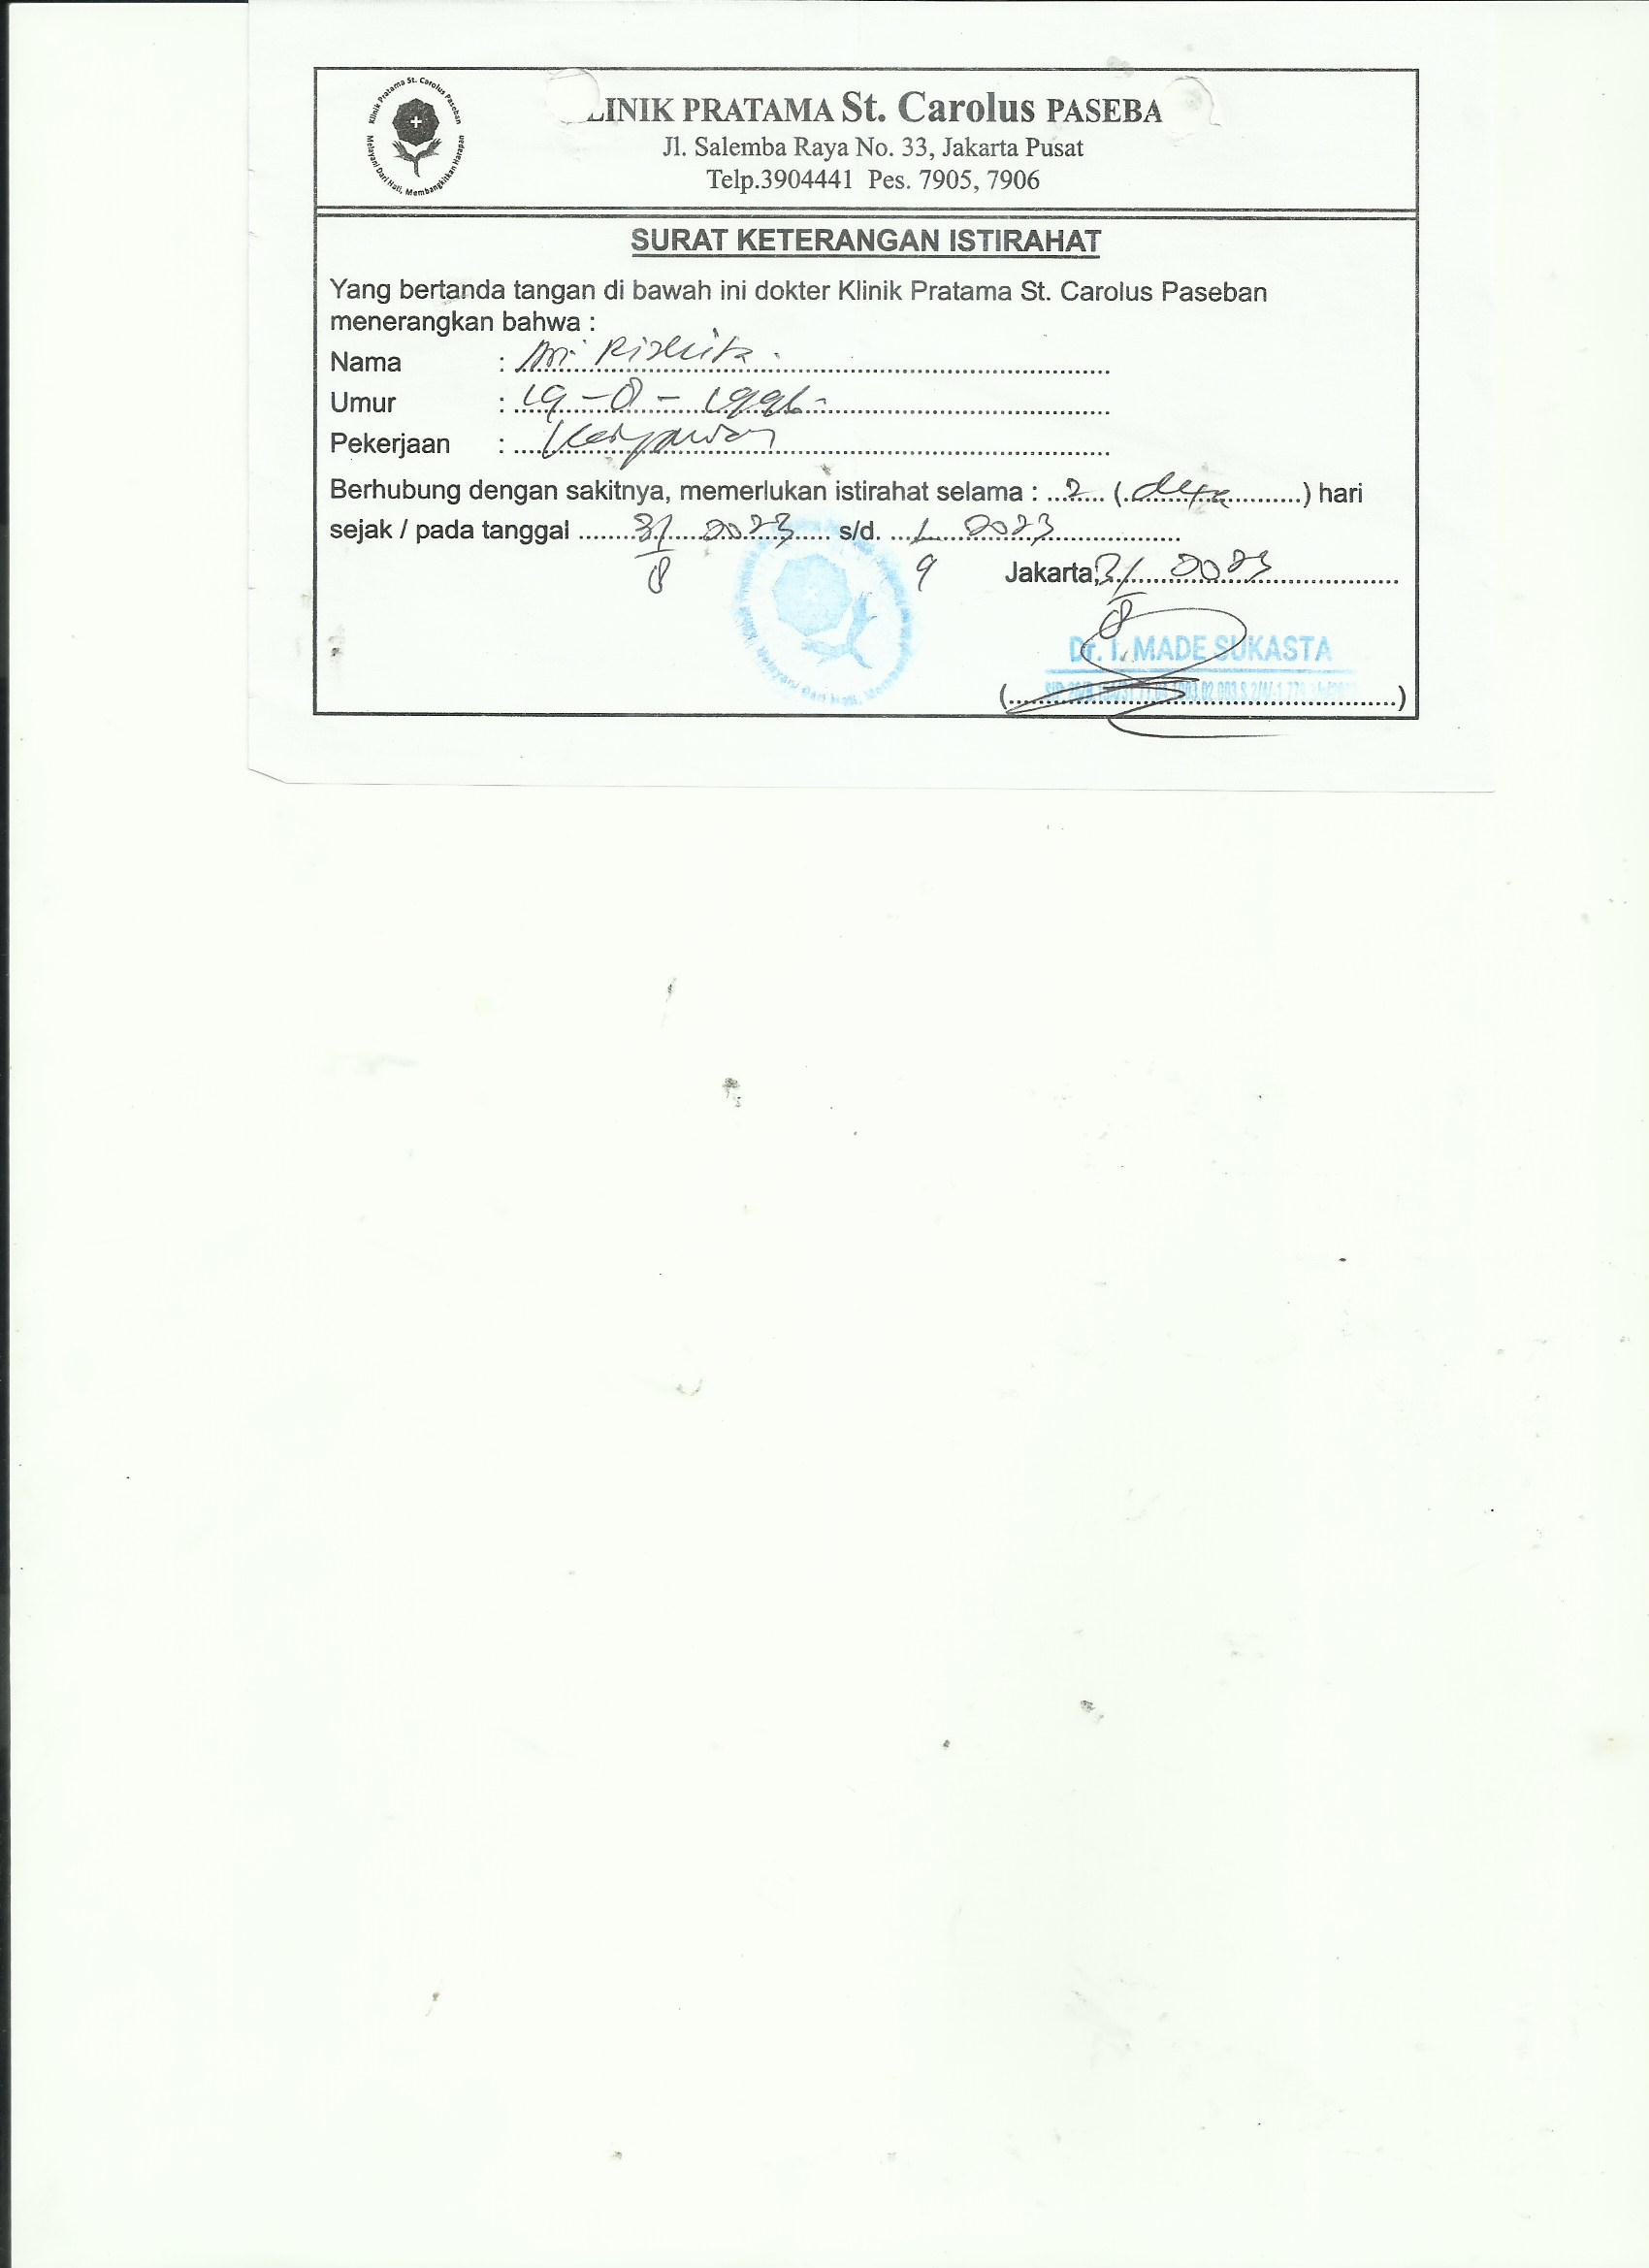 Klinik Pratama St. Carolus Paseban
Melayani Dari Hati, Membangkitkan Harapan
LINIK PRATAMA St. Carolus PASEBA
Jl. Salemba Raya No. 33, Jakarta Pusat
Telp.3904441 Pes. 7905, 7906
SURAT KETERANGAN ISTIRAHAT
Yang bertanda tangan di bawah ini dokter Klinik Pratama St. Carolus Paseban
menerangkan bahwa :
Nama :
Umur : 19-8-1996
Pekerjaan : Karyawan
Berhubung dengan sakitnya, memerlukan istirahat selama : 2 (dua) hari
sejak / pada tanggal 31/8 2023 s/d. 1/9 2023
Jakarta, 31/8 2023
Dr. I. MADE SUKASTA
(....................)